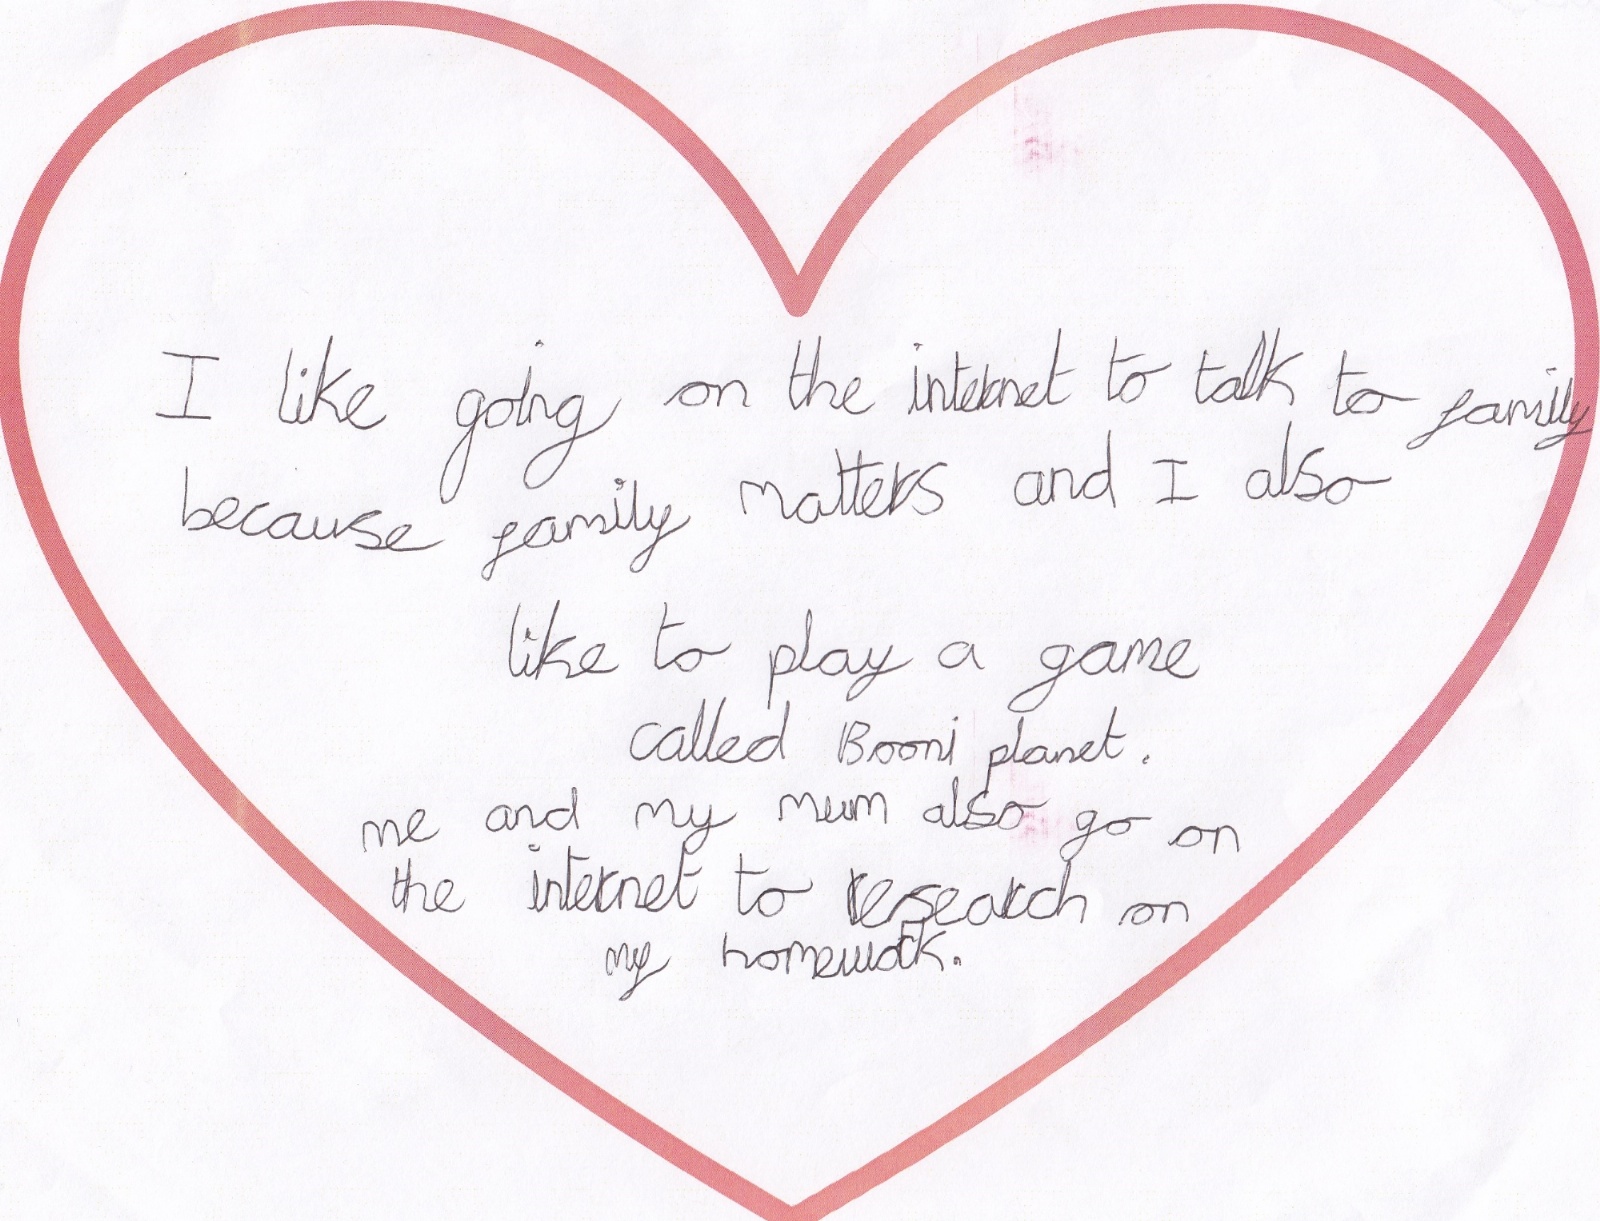 I like going on the internet to talk to family
because family matters and I also
like to play a game
called Booni planet.
me and my mum also go on
the internet to research on
my homework.